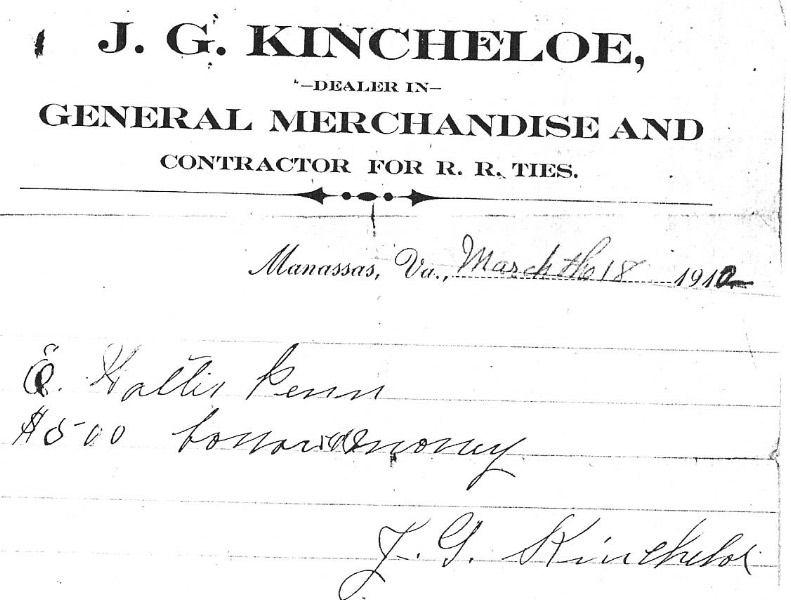 J. G. KINCHELOE,
-DEALER IN-
GENERAL MERCHANDISE AND
CONTRACTOR FOR R. R. TIES.
Manassas, Va., March the 18 1912
Penn
$500 borrowed money
J. G. Kincheloe